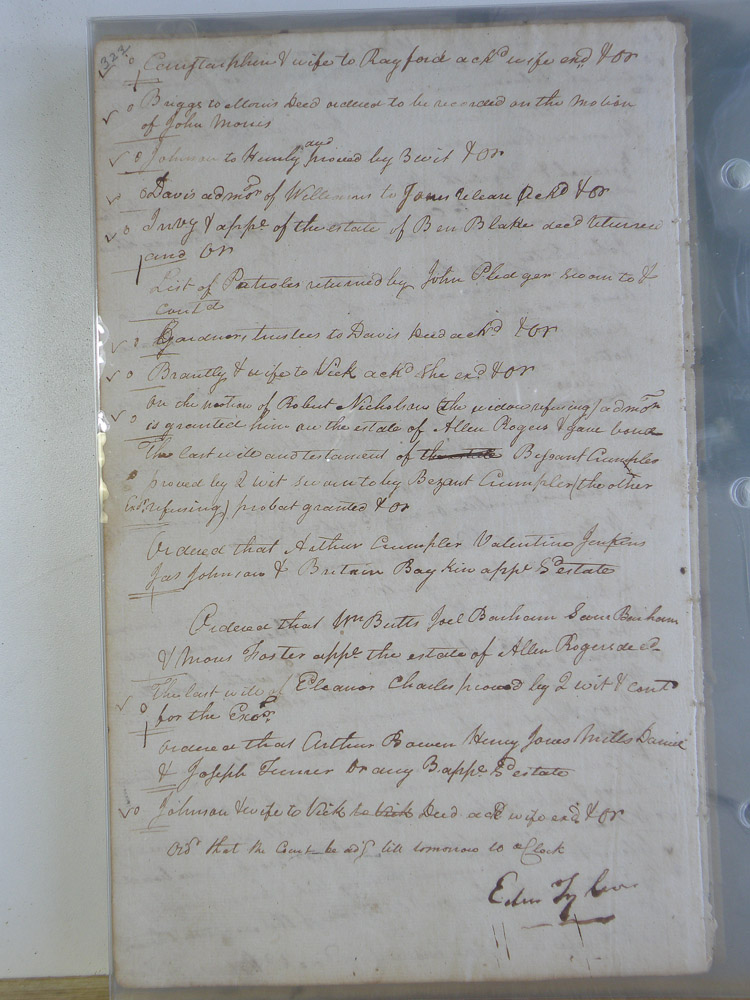 323
& wife to Rayford ackd wife exd & OR
Briggs to Morris Deed ordered to be recorded on the Motion
of John Morris
Johnson to Hunly and proved by 3 wit & OR
Davis admor of Williams to Jones release Ackd & OR
Invy & appt of the estate of Ben Blake decd returned
and OR
List of Patroles returned by John Pledger sworn to &
contd
Gardners trustees to Davis Deed ackd & OR
Brantly & wife to Vick ackd She exd & OR
On the motion of Robert Nicholson (the widow refusing) admor
is granted him on the estate of Allen Rogers & gave bond
The last will and testament of the estate Beszant Crumpler
proved by 2 wit sworn to by Bezant Crumpler (the other
Exdrs refusing) probat granted & OR
Ordered that Arthur Crumpler Valentine Jenkins
Jas Johnson & Britain Baykin appt Sd estate
Ordered that Wm Butts Joel Barham Saml Barham
& Mons Foster appt the estate of Allen Rogers decd
The last will of Eleanor Charles proved by 2 wit & cont
for the Exor
Ordered that Arthur Bowen Henry Jones Mills Daniel
& Joseph Turner Or any 3 appt Sd estate
Johnson & wife to Vick to Vick Deed ackd wife exd & OR
Ordd that the Court be adjd till tomorrow 10 oClock
Edm Tyler